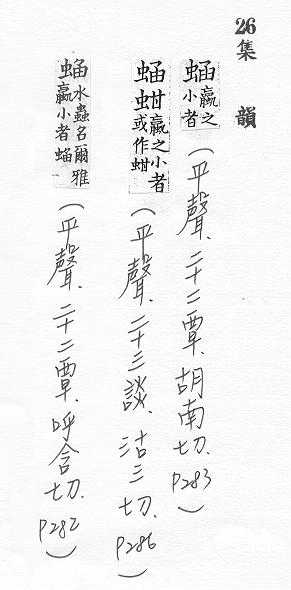 26 集韻
蜬 蠃之小者 (平聲. 二十二覃. 胡南切. P283)
蜬蚶 蠃之小者或作蚶 (平聲. 二十三談. 沽三切. P286)
蜬 水蟲名爾雅蠃小者蜬 (平聲. 二十二覃. 呼含切. P282)